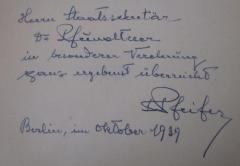 Herrn Staatssekretär
Dr Pfundtner
in besonderer Verehrung
ganz ergebenst überreicht.
Pfeifer
Berlin, im Oktober 1939